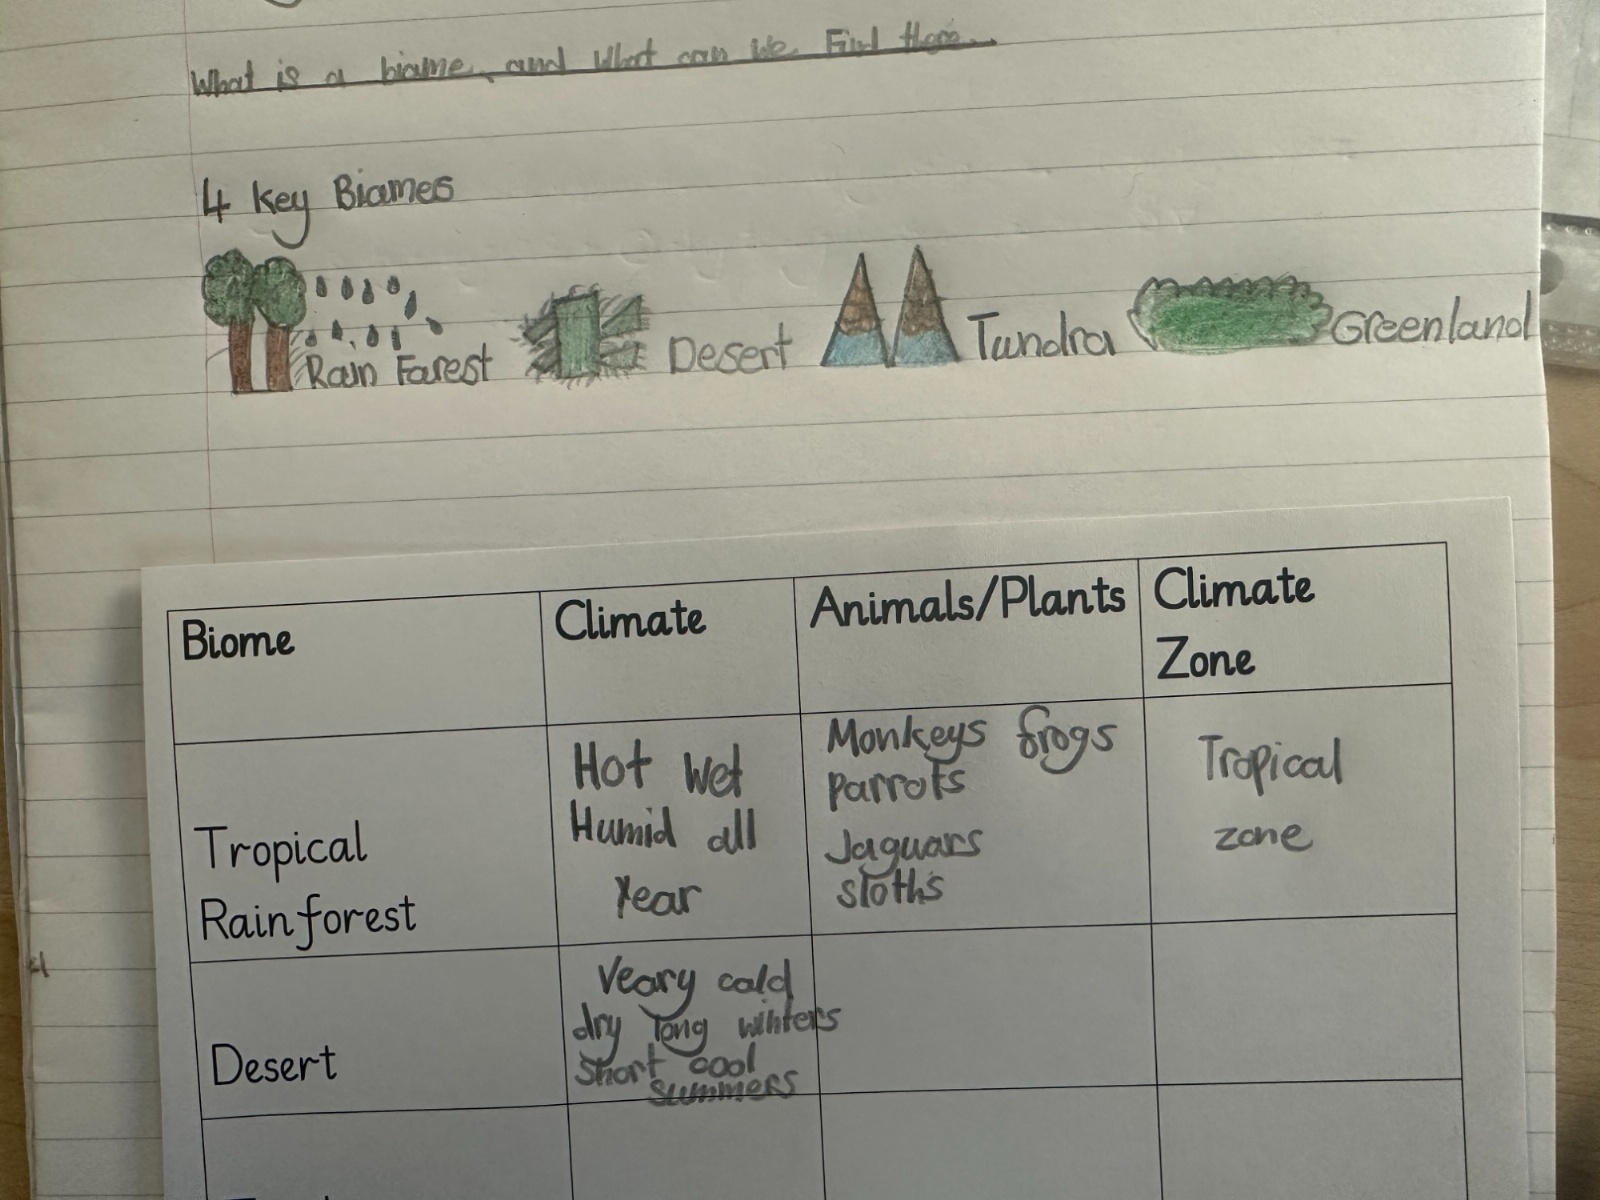 What is a biame, and What can we Find there.
4 key Biames
Rain Farest
Desert
Tundra
Greenland
Biome
Climate
Animals/Plants
Climate
Zone
Tropical
Rainforest
Hot Wet
Humid all
Year
Monkeys frogs
Parrots
Jaguars
sloths
Tropical
zone
Desert
Veary cald
dry long winters
Short cool
summers